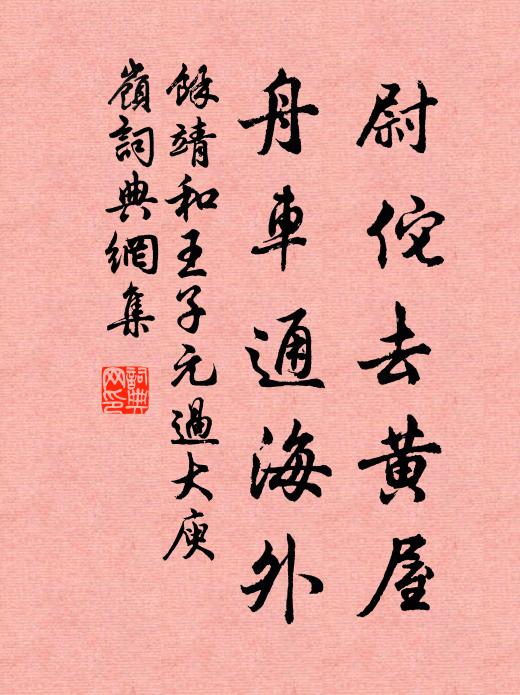 尉佗去黄屋
舟車通海外
餘靖和王子元過大庾
嶺詞典網集
詞典網印